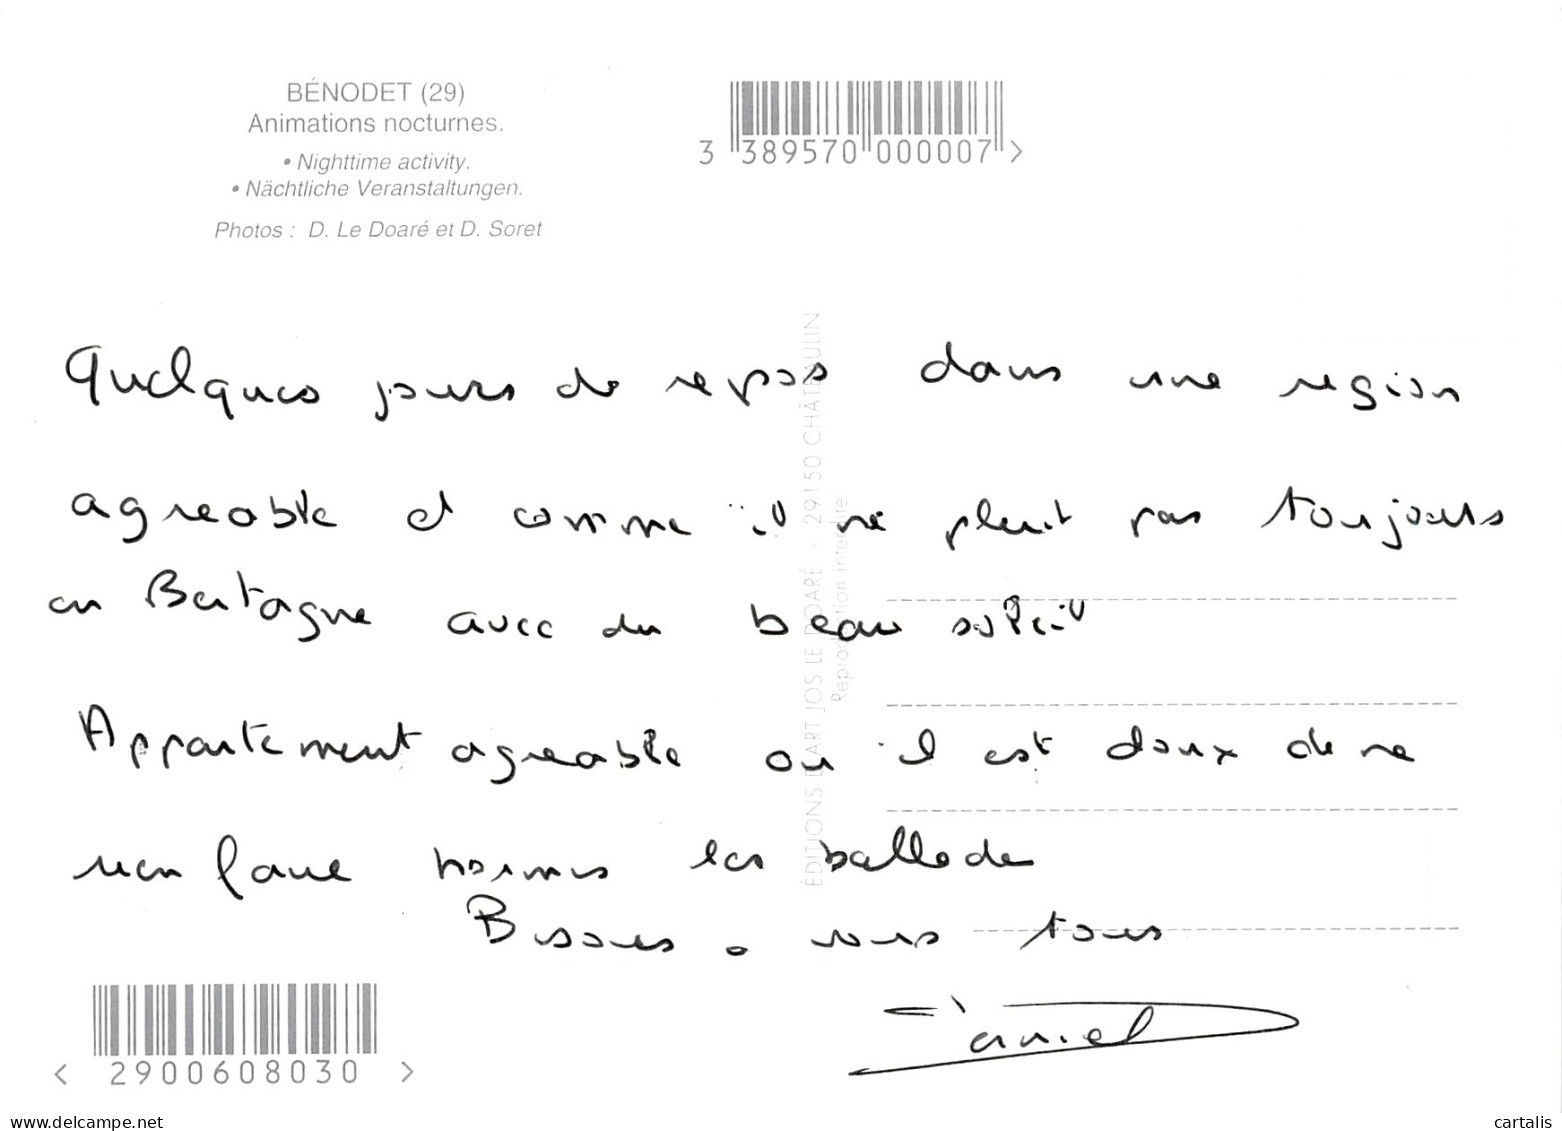 BÉNODET (29)
Animations nocturnes.
• Nighttime activity.
• Nächtliche Veranstaltungen.
Photos : D. Le Doaré et D. Soret
3 389570 000007 >
ÉDITIONS D'ART JOS LE DOARÉ - 29150 CHÂTEAULIN
Reproduction interdite
Quelques jours de repos dans une region
agreable et comme il ne pleut pas toujours
en Bretagne avec du beau soleil
Appartement agreable ou il est doux de ne
rien faire hormis les ballade
Bisous a vous tous
Daniel
< 2900608030 >
www.delcampe.net
cartalis